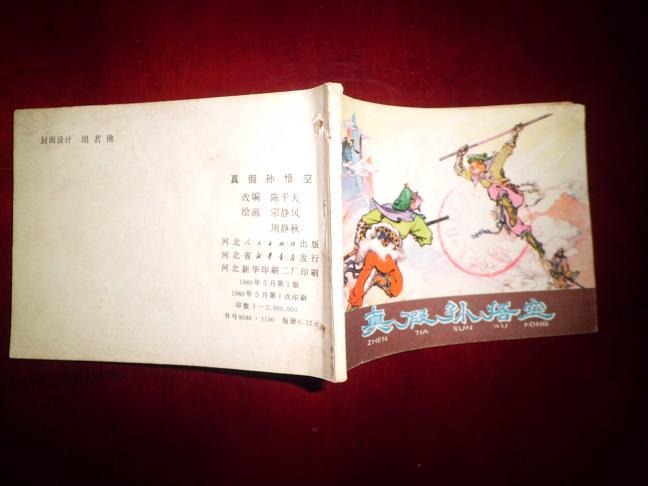 封面设计 胡若佛
真假孙悟空
改编 陈平夫
绘画 宗静风
周静秋
河北人民出版社出版
河北省新华书店发行
河北新华印刷二厂印刷
1980年5月第1版
1980年5月第1次印刷
印数1—2,000,000
书号8086·1190 每册0.12元
真假孙悟空
ZHEN JIA SUN WU KONG